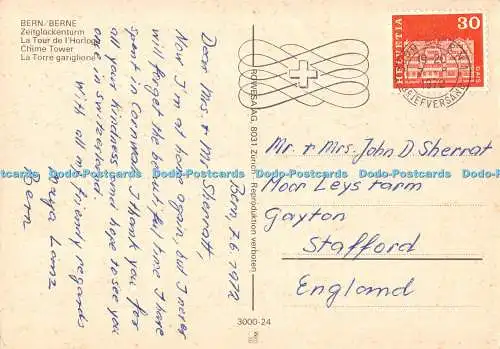 BERN/BERNE
Zeitglockenturm
La Tour de l'Horloge
Chime Tower
La Torre gariglione
Bern, 7.6.1972
Dear Mrs. + Mr. Sherratt,
Now I'm at home again, but I never
will forget the beautiful time I have
spent in Cornwall. I thank you for
all your kindness and hope to see you
once in Switzerland.
With all my friendly regards
Bern
3000-24
HELVETIA
30
GAIS
BRIEFVERSAND
Mr. + Mrs. John D. Sherrat
Moor Leys Farm
Gayton
Stafford
England
Dodo-Postcards Dodo-Postcards Dodo-Postcards Dodo-Postcards Dodo-Postcards